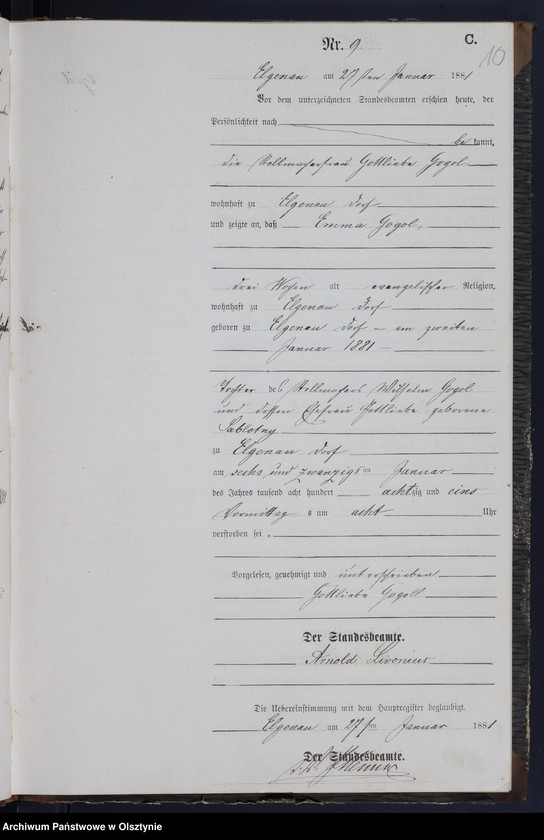 Nr. 9
C.
10
Elgenau am 27ten Januar 1881
Vor dem unterzeichneten Standesbeamten erschien heute, der
Persönlichkeit nach
be kannt,
die Stellmacherfrau Gottliebe Gogol
wohnhaft zu Elgenau Dorf
und zeigte an, daß Emma Gogol,
drei Wochen alt evangelischer Religion,
wohnhaft zu Elgenau Dorf
geboren zu Elgenau Dorf am zweiten
Januar 1881
Tochter des Stellmachers Wilhelm Gogol
und dessen Ehefrau Gottliebe geborene
Sablotny
zu Elgenau Dorf
am sechs und zwanzigsten Januar
des Jahres tausend acht hundert achtzig und eins
Vormittag s um acht Uhr
verstorben sei.
Vorgelesen, genehmigt und unterschrieben
Gottliebe Gogoll
Der Standesbeamte.
Arnold Livonius
Die Uebereinstimmung mit dem Hauptregister beglaubigt.
Elgenau am 27ten Januar 1881
Der Standesbeamte.
Archiwum Państwowe w Olsztynie